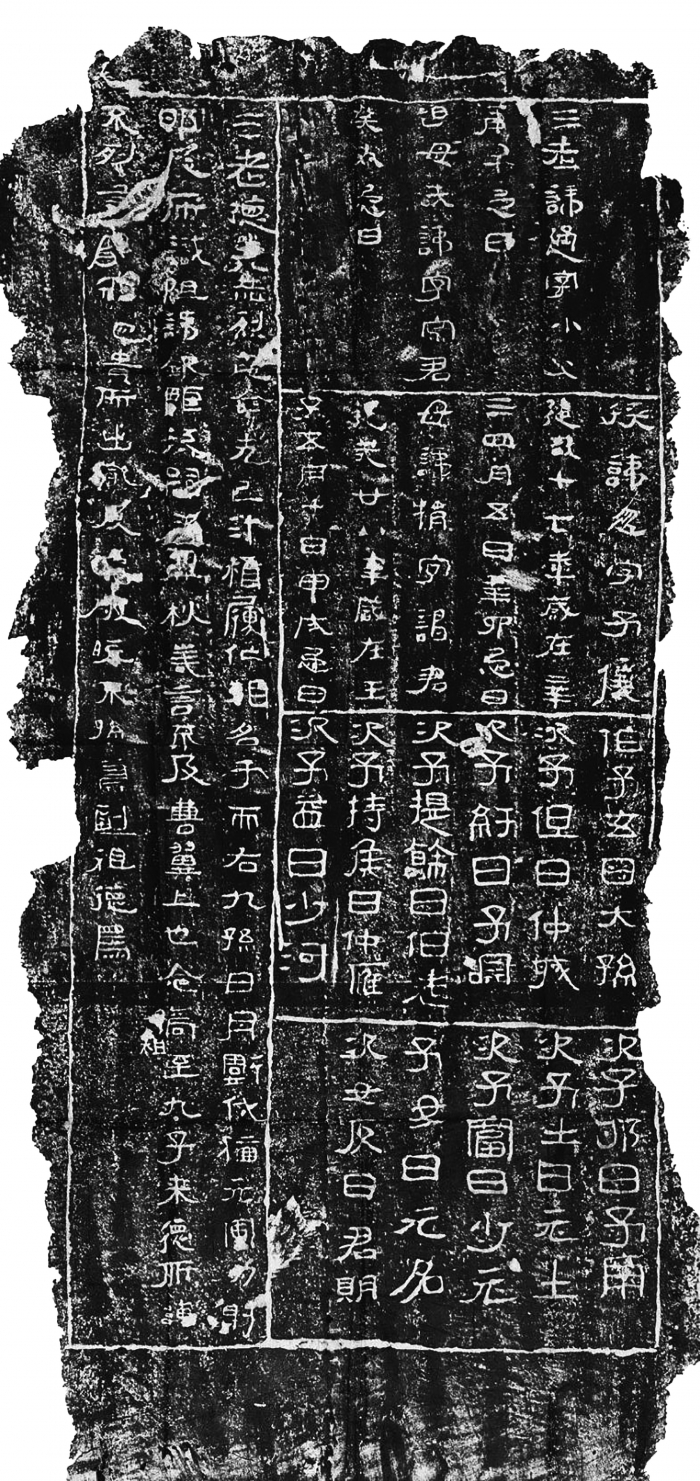 三老諱通字小父
庚午忌日
祖母失諱字宗君
癸未忌日
掾諱忽字子儀
建武十七年歲在辛
丑四月五日辛卯忌日
母諱捐字謁君
建武廿八年歲在壬
子五月十日甲戌忌日
伯子玄曰大孫
次子但曰仲城
次子紆曰子淵
次子提餘曰伯老
次子持侯曰仲雍
次子盆曰少河
次子邯曰子南
次子士曰元士
次子富曰少元
子女曰元名
次女反曰君明
三老德業赫烈克命先己汁稽履化名兮而右九孫日月虧代猶元風力射
邯及所識祖諱欽顯後嗣蓋春秋義言不及尊翼上也念高祖至九子未遠所諱
不列言事觸忌貴所出嚴及焦敬曉末孫冀副祖德焉